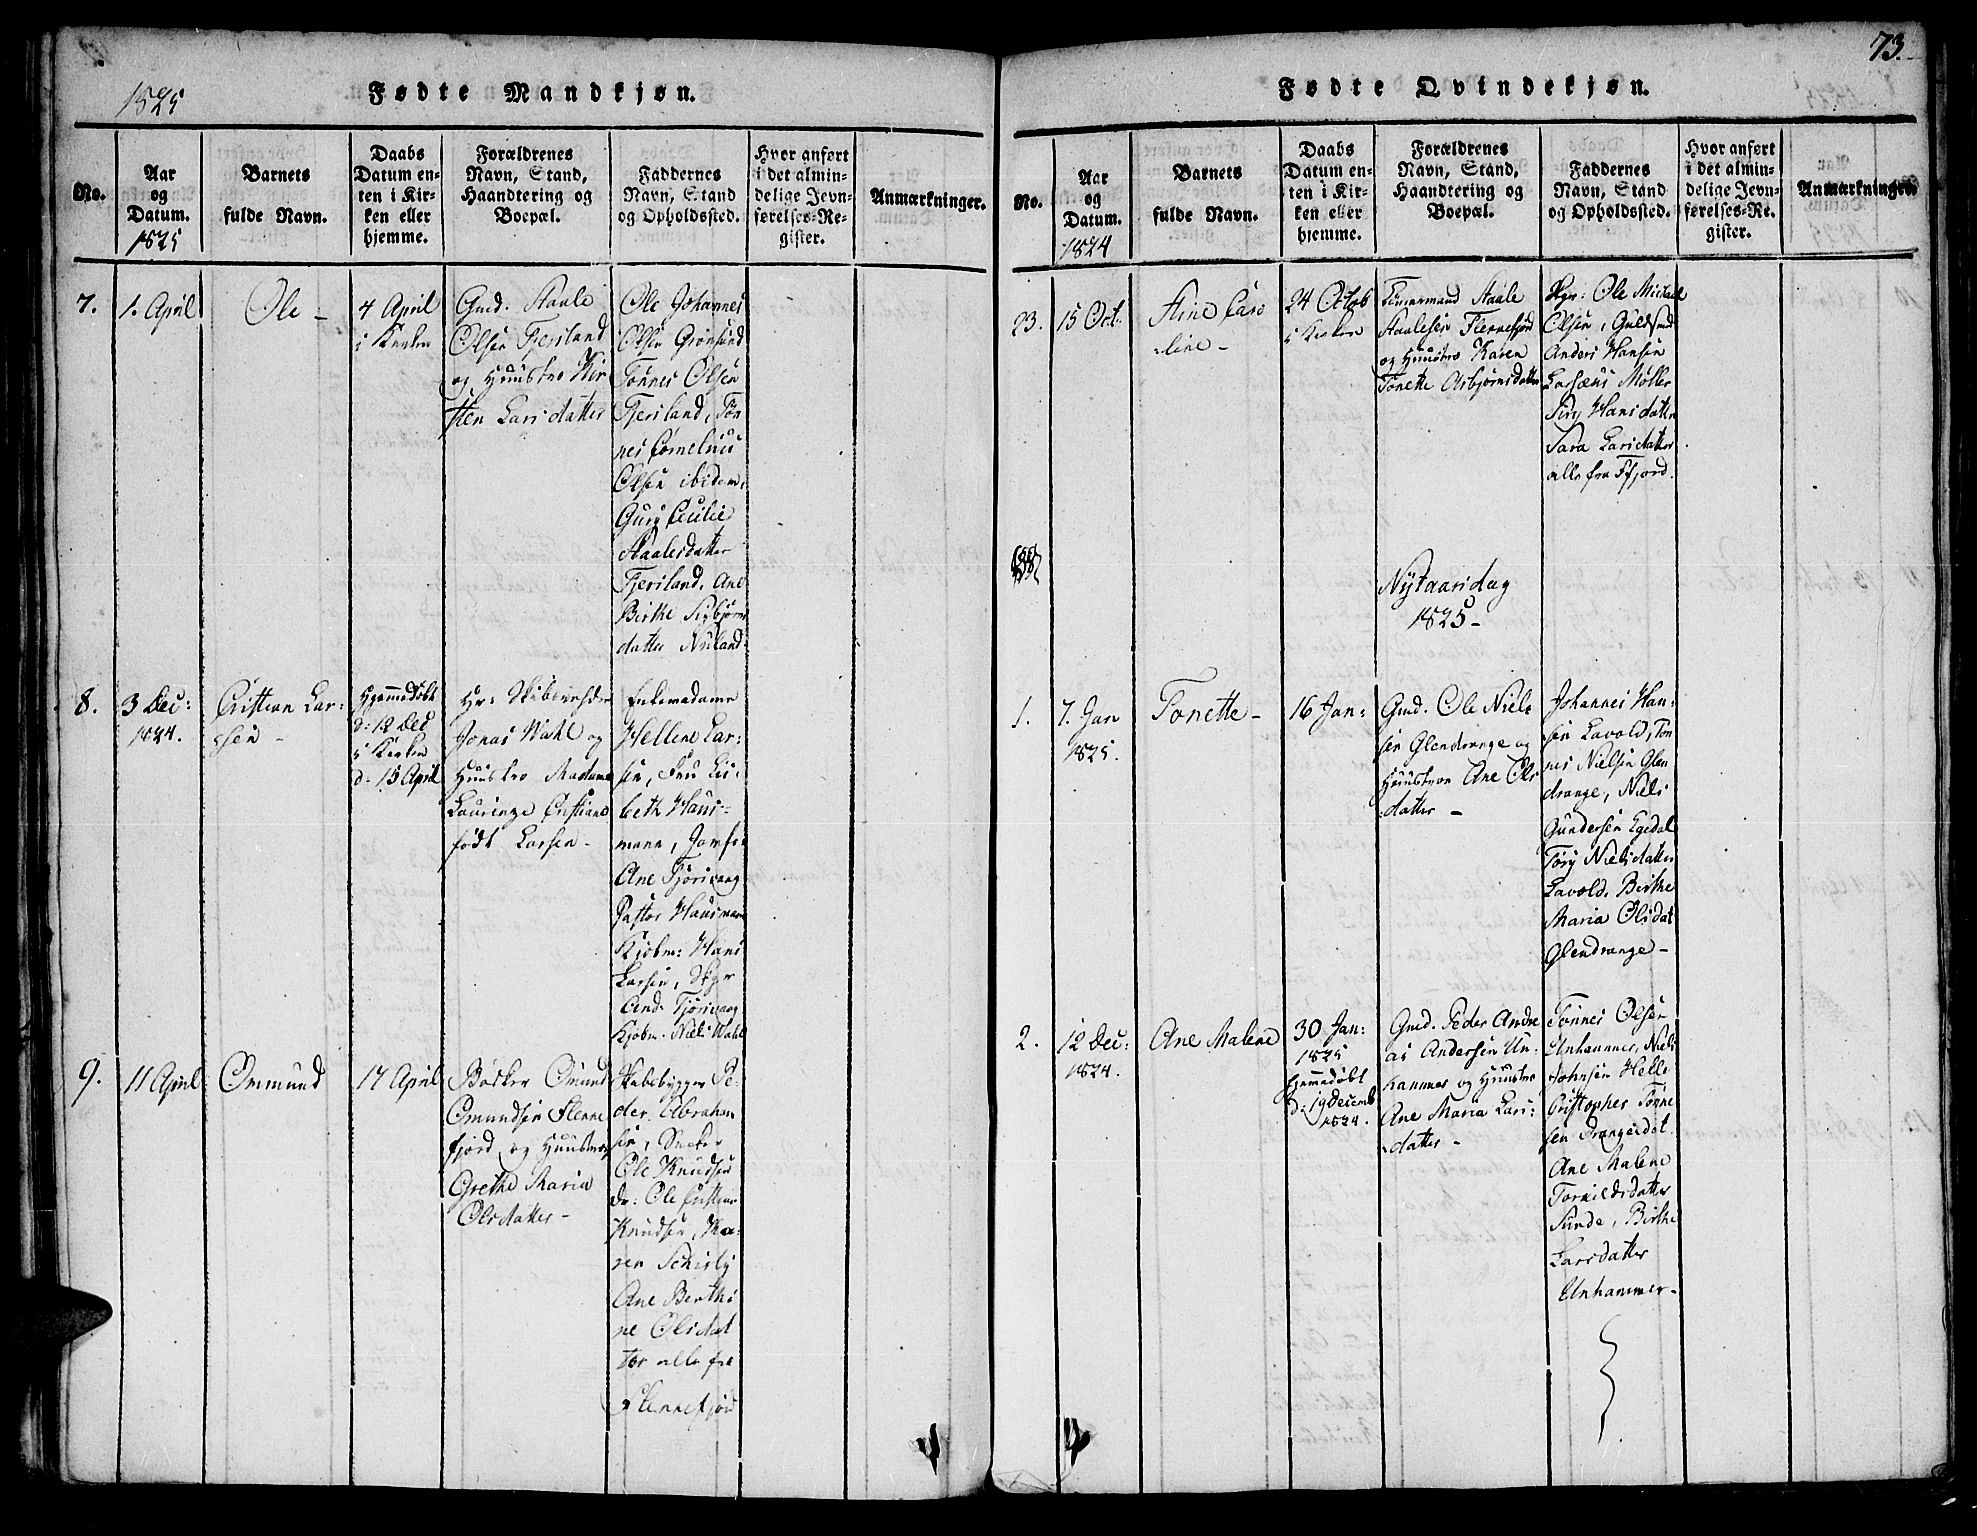 1825
Fødte Mandkjøn.
No.
Aar
og
Datum.
1825
Barnets
fulde Navn.
Daabs
Datum en-
ten i Kir-
ken eller
hjemme.
Forældrenes
Navn, Stand,
Haandtering og
Boepæl.
Faddernes
Navn, Stand
og Opholdssted.
Hvor anført
i det almin-
delige Jevn-
førelses-Re-
gister.
Anmærkninger.
7.
1. April
Ole -
4 April
i Kirken
Gmd. Staale
Olsen Fjersland
og Huustro Kir
sten Larsdatter
Ole Johannes
Olsen Grønsund
Tønnes Olsen
Fjersland, Tøn
nes Cornelius
Olsen ibidem,
Gury Cecilie
Staalesdatter
Fjersland, Ane
Birthe Sigbjørns
datter Nuland
8.
3 Dec:
1824.
Cristian Lar-
sen -
Hjemmedøbt
d: 12 Dec
i Kirken
d: 15 April
Hr: Skibsreder
Jonas Wahl og
Huustro Madame
Lauringe Cristiane
født Larsen -
Enkemadame
Hellene Lar-
sen, Fru Lis-
beth Haus-
mann, Jomfr:
Ane Tjørsvaag
Pastor Hausmann
Kjøbm: Hans
Larsen, Skpr
And: Tjørsvaag
Kjøbm. Niels Wahl
9.
11 April
Ommund
17 April
Bødker Omund
Omundsen Flekke
fjord og Huustroe
Grethe Maria
Olsdatter -
Skibsbygger Pe-
der Abraham
sen, Sneker
Ole Knudsen
do: Ole Cristian
Knudsen, Ka-
ren Schisby
Ane Berthi
ne Olsdat
ter alle fra
Flekkefjord
73.
Fødte Qvindekjøn.
No.
Aar
og
Datum.
1824
Barnets
fulde Navn.
Daabs
Datum en-
ten i Kir-
ken eller
hjemme.
Forældrenes
Navn, Stand,
Haandtering og
Boepæl.
Faddernes
Navn, Stand
og Opholdssted.
Hvor anført
i det almin-
delige Jevn-
førelses-Re-
gister.
Anmærkninger.
23.
15 Oct.
Stine Caro
line -
24 Octob
i Kirken
Tømermand Staale
Staalesen Flekkefjord
og Huustro Karen
Tonette Asbjørnsdatter
Skpr: Ole Michael
Olsen, Guldsmed
Anders Hansen
Larsæus Møller
Siry Hansdatter
Sara Larsdatter
alle fra Ffjord.
Nytaarsdag
1825 -
1.
7. Jan
1825.
Tonette -
16 Jan:
Gmd. Ole Niels
sen Glendrange og
Huustroe Ane Ols
datter -
Johannes Han-
sen Lavold, Tøn
nes Nielsen Glen
drange, Niels
Gundersen Egedal
Tory Nielsdatter
Lavold, Birthe
Maria Olsdat
Glendrange -
2.
12 Dec:
1824.
Ane Malene
30 Jan:
1825
hjemmedøbt
d: 19 Decemb
1824.
Gmd. Peder Andre
as Andersen Un-
hammer og Huustro
Ane Maria Lars-
datter -
Tønnes Olsen
Unhammer, Niels
Johnsen Helle
Cristopher Tønne
sen Drangeidet
Ane Malene
Torkildsdatter
Sunde, Birthe
Larsdatter
Unhammer -